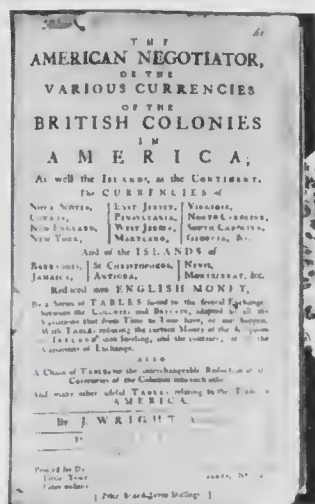 THE
AMERICAN NEGOTIATOR,
OR THE
VARIOUS CURRENCIES
OF THE
BRITISH COLONIES
IN
AMERICA;
As well the ISLANDS, as the CONTINENT.
The CURRENCIES of
NOVA SCOTIA, EAST JERSEY, VIRGINIA,
CANADA, PENSYLVANIA, NORTH CAROLINA,
NEW ENGLAND, WEST JERSEY, SOUTH CAROLINA,
NEW YORK, MARYLAND, GEORGIA, &c.
And of the ISLANDS of
BARBADOES, St CHRISTOPHERS, NEVIS,
JAMAICA, ANTIGUA, MONTSERRAT, &c.
Reduced into ENGLISH MONEY,
By a Series of TABLES suited to the several Exchanges
between the COLONIES and BRITAIN, adapted to all the
Variations that from Time to Time have, or may happen.
With TABLES reducing the current Money of the
of IRELAND into sterling, and the contrary, at the
Variations of Exchange.
ALSO
A Chain of TABLES for the interchangeable Reduction of
Currencies of the Colonies into each other
And many other useful TABLES relating to the Trade in
AMERICA.
By J. WRIGHT
Printed for
[ Price Seven Shillings ]